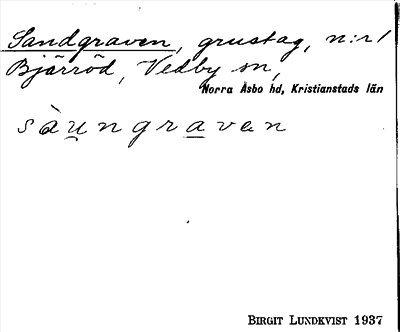 Sandgraven, grustag, n:r 1
Bjärröd, Vedby sn,
Norra Åsbo hd, Kristianstads län
sàungraven
BIRGIT LUNDKVIST 1937